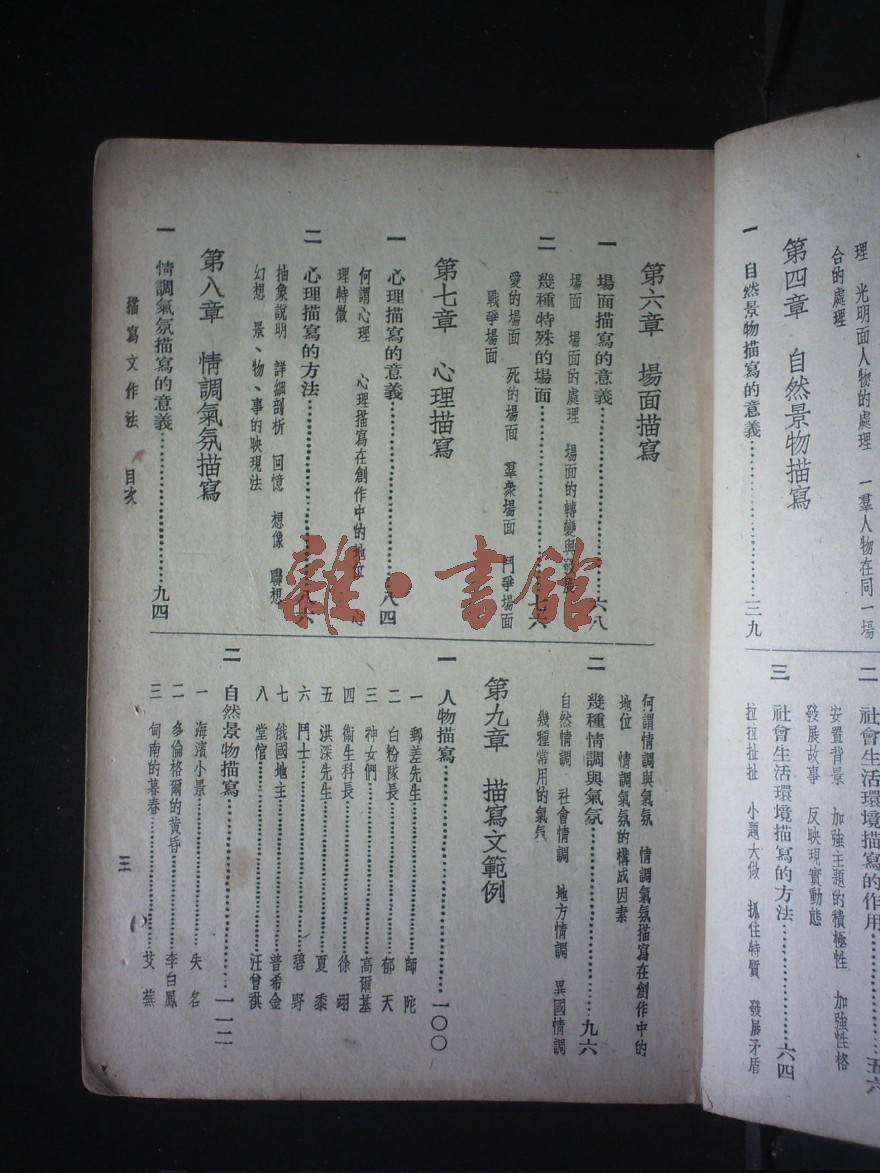 理　光明面人物的處理　一羣人物在同一場
合的處理
第四章　自然景物描寫
一　自然景物描寫的意義…………三九
二　社會生活環境描寫的作用…………五六
安置背景　加強主題的積極性　加強性格
發展故事　反映現實動態
三　社會生活環境描寫的方法…………六四
拉拉扯扯　小題大做　抓住特質　發展矛盾
第六章　場面描寫
一　場面描寫的意義…………六八
場面　場面的處理　場面的轉變與發展
二　幾種特殊的場面…………七六
愛的場面　死的場面　羣衆場面　鬥爭場面
戰爭場面
第七章　心理描寫
一　心理描寫的意義…………八四
何謂心理　心理描寫在創作中的地位　心
理特徵
二　心理描寫的方法…………八六
抽象說明　詳細剖析　回憶　想像　聯想
幻想　景、物、事的映現法
第八章　情調氣氛描寫
一　情調氣氛描寫的意義…………九四
何謂情調與氣氛　情調氣氛描寫在創作中的
地位　情調氣氛的構成因素
二　幾種情調與氣氛…………九六
自然情調　社會情調　地方情調　異國情調
幾種常用的氣氛
第九章　描寫文範例
一　人物描寫…………一〇〇
一　郵差先生…………師陀
二　白粉隊長…………郁天
三　神女們…………高爾基
四　衞生科長…………徐翊
五　洪深先生…………夏黍
六　鬥士…………碧野
七　俄國地主…………普希金
八　堂倌…………汪曾祺
二　自然景物描寫…………一一二
一　海濱小景…………失名
二　多倫格爾的黄昏…………李白鳳
三　甸南的暮春…………艾蕪
描寫文作法　目次
三
雜·書館